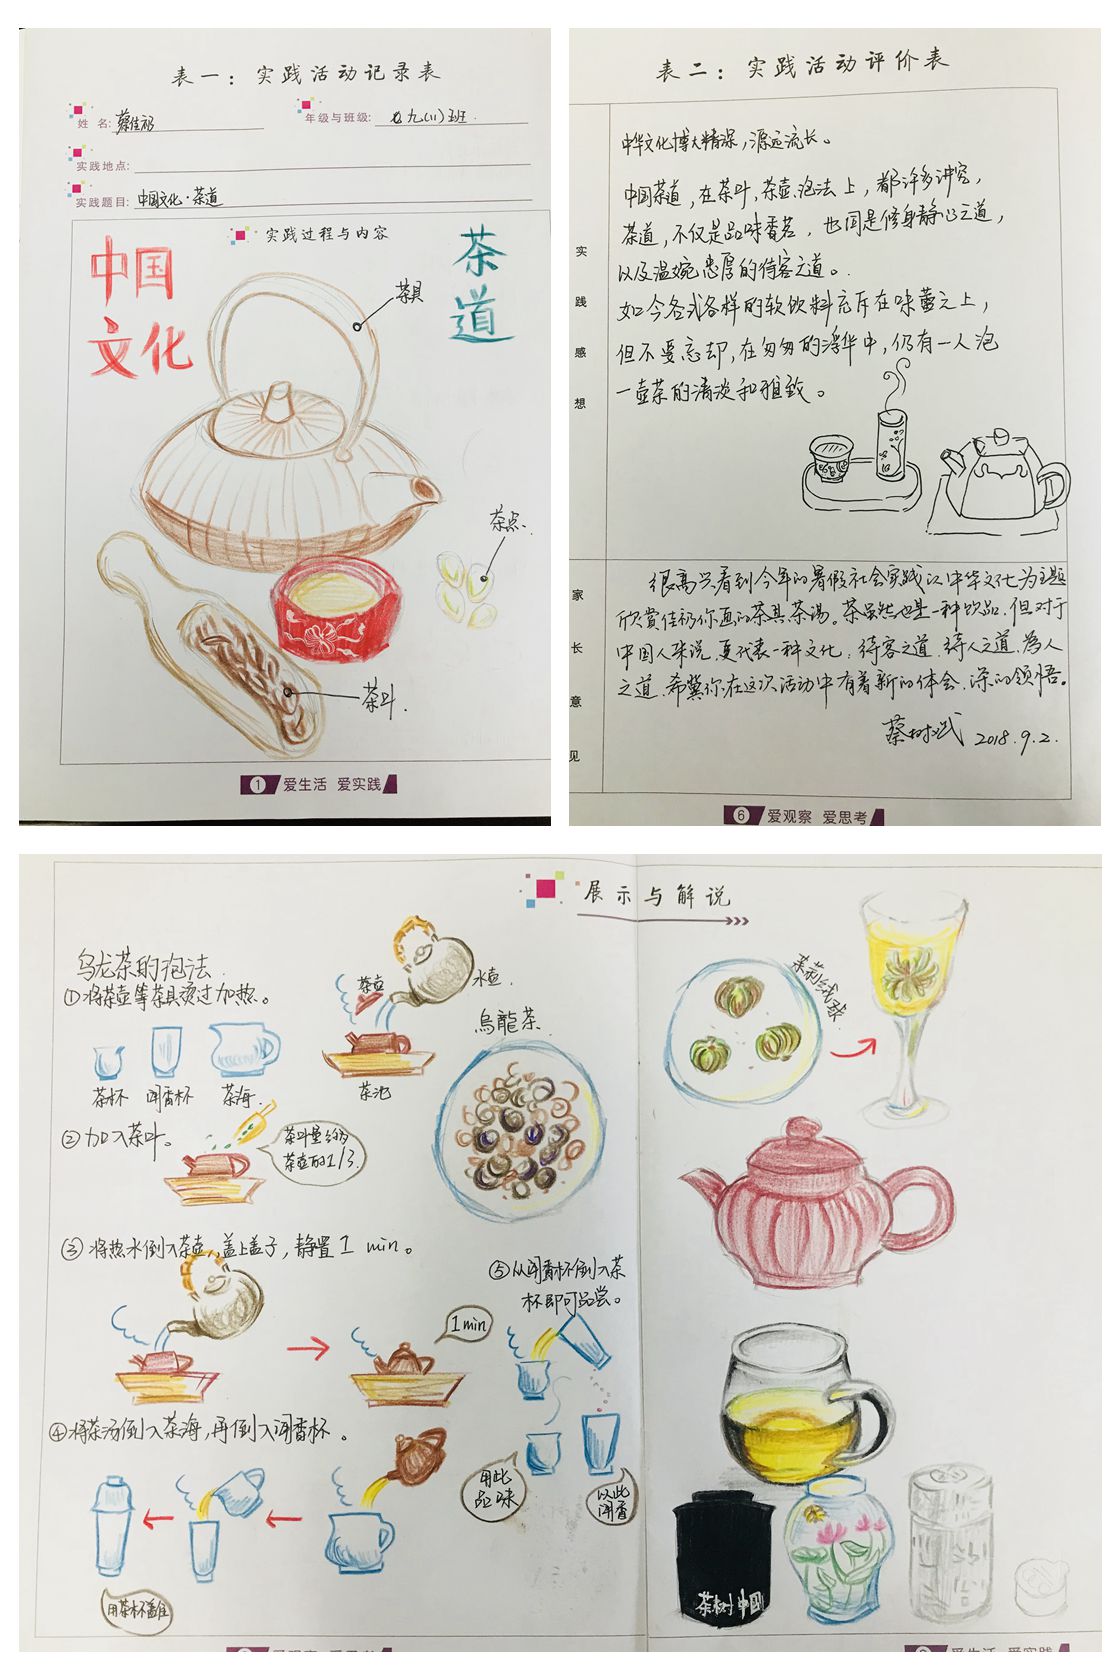 表一：实践活动记录表
姓 名: 蔡佳祁
年级与班级: 九(11)班
实践地点:
实践题目: 中国文化·茶道
实践过程与内容
中国
文化
茶
道
茶具
茶点
茶叶
1 爱生活 爱实践
表二：实践活动评价表
实践感想
中华文化博大精深，源远流长。
中国茶道，在茶叶，茶壶，泡法上，都许多讲究，
茶道，不仅是品味香茗，也同是修身静心之道，
以及温婉忠厚的待客之道。
如今各式各样的软饮料充斥在味蕾之上，
但不要忘却，在匆匆的浮华中，仍有一人泡
一壶茶的清淡和雅致。
家长意见
很高兴看到今年的暑假社会实践以中华文化为主题
欣赏佳祁你画的茶具、茶汤。茶虽然也是一种饮品，但对于
中国人来说，更代表一种文化，待客之道，待人之道，為人
之道，希冀你在这次活动中有着新的体会、深的领悟。
蔡树斌 2018.9.2.
6 爱观察 爱思考
展示与解说
乌龙茶的泡法
①将茶壶等茶具烫过加热。
茶杯 闻香杯 茶海
茶壶
水壶
茶池
烏龍茶
②加入茶叶。
茶叶量约为
茶壶的1/3.
③将热水倒入茶壶，盖上盖子，静置1 min。
1min
④将茶汤倒入茶海，再倒入闻香杯。
用茶杯盖住
⑤从闻香杯倒入茶
杯即可品尝。
用此
品味
以此
闻香
茉莉绒球
茶树中国
爱观察 爱思考
爱生活 爱实践